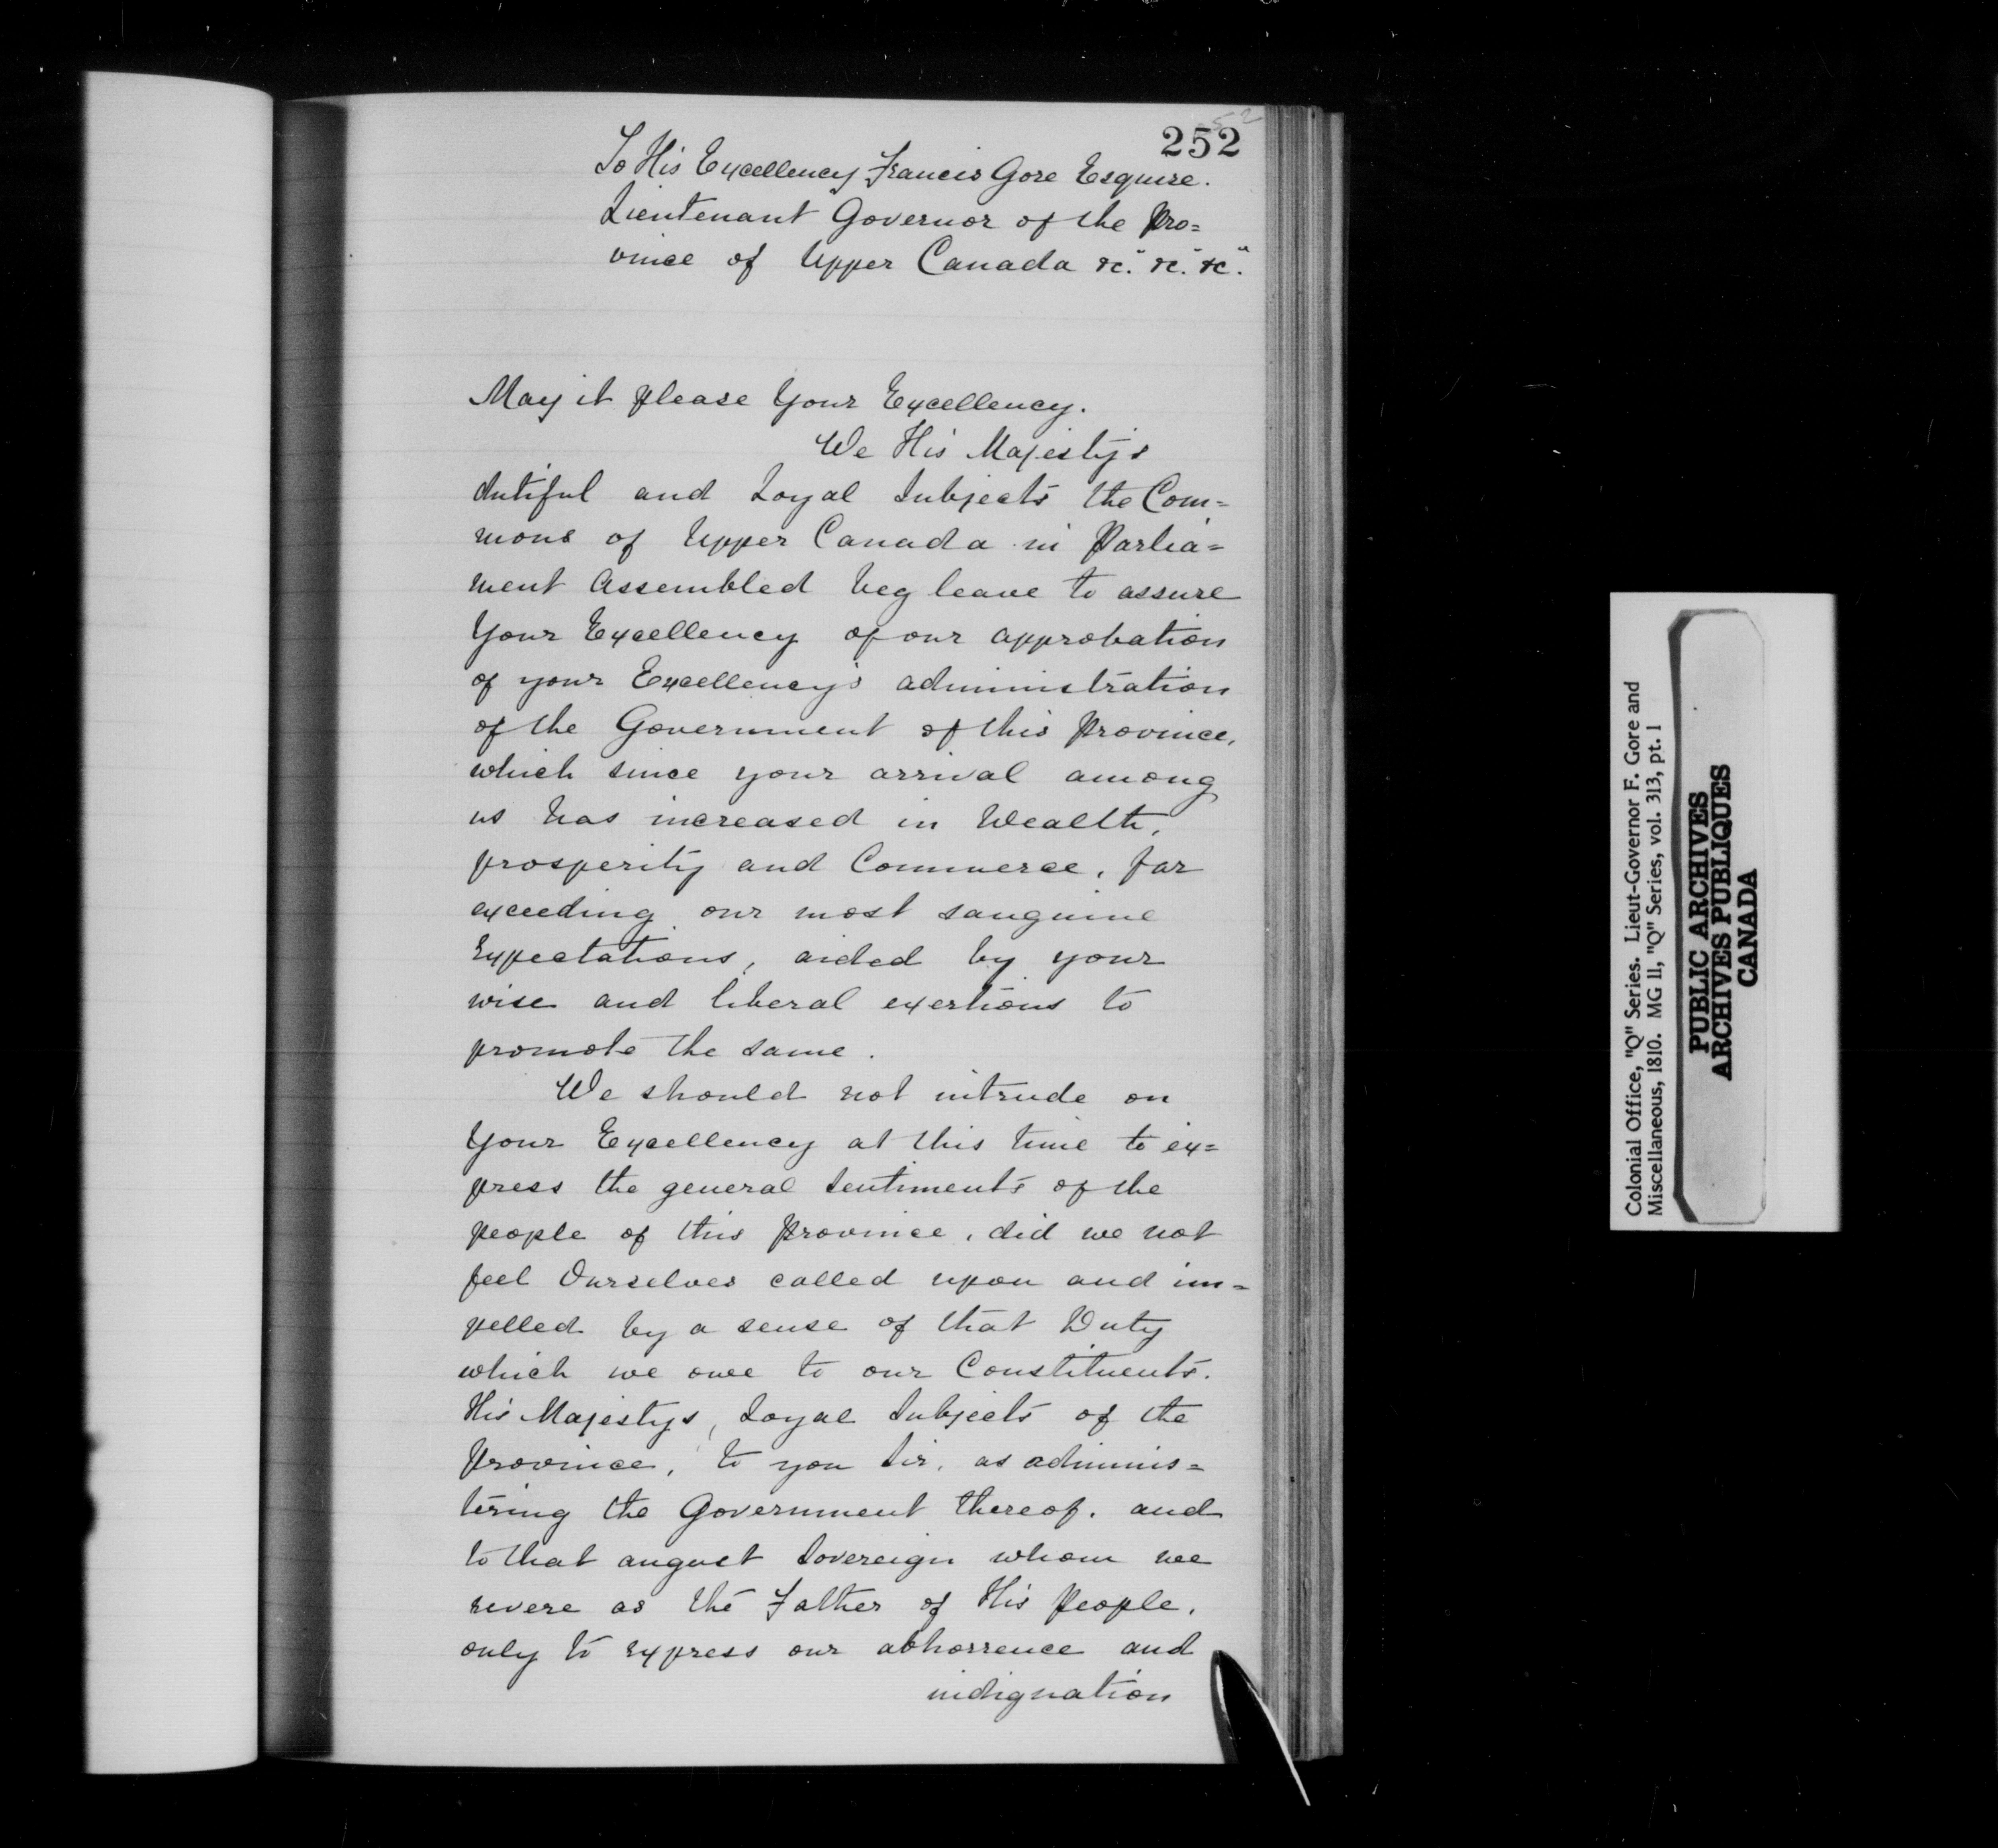 252
To His Excellency Francis Gore Esquire.
Lieutenant Governor of the Pro=
vince of Upper Canada &c. &c. &c.
May it please Your Excellency.
We His Majesty's
dutiful and Loyal Subjects the Com=
mons of Upper Canada in Parlia=
ment Assembled beg leave to assure
Your Excellency of our approbation
of your Excellency's administration
of the Government of this Province,
which since your arrival among
us has increased in Wealth,
prosperity and Commerce, far
exceeding our most sanguine
Expectations, aided by your
wise and liberal exertions to
promote the same.
We should not intrude on
Your Excellency at this time to ex=
press the general Sentiments of the
people of this Province, did we not
feel Ourselves called upon and im=
pelled by a sense of that Duty
which we owe to our Constituents.
His Majestys, Loyal Subjects of the
Province, to you Sir, as adminis=
tering the Government thereof. and
to that august Sovereign whom we
revere as the Father of His People,
only to express our abhorrence and
indignation
Colonial Office, "Q" Series. Lieut-Governor F. Gore and
Miscellaneous, 1810. MG 11, "Q" Series, vol. 313, pt. 1
PUBLIC ARCHIVES
ARCHIVES PUBLIQUES
CANADA